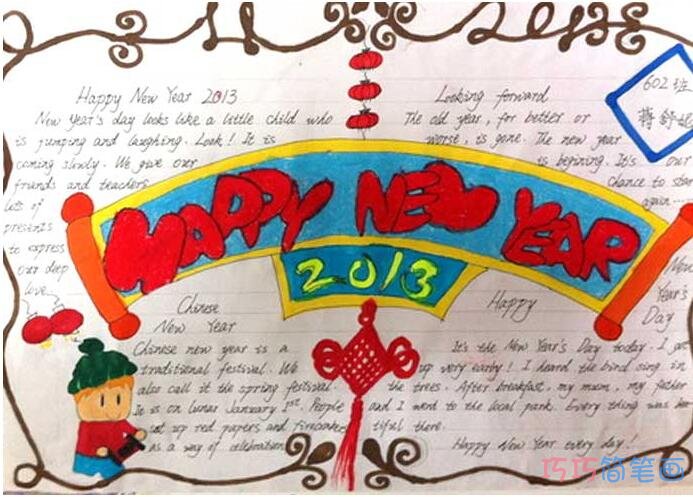 Happy New Year 2013
New Year's day looks like a little child who
is jumping and laughing. Look! It is
coming slowly. We give our
friends and teachers
lots of
presents
to express
our deep
love.
Looking forward
The old year, for better or
worse, is gone. The new year
is begining. It's our
chance to star
again....
602班
蒋舒妮
HAPPY NEW YEAR
2013
Chinese
New Year
Chinese new year is a
traditional festival. We
also call it the spring festival.
It is on lunar January 1st. People
set up red papers and firecraker
as a way of celebration.
Happy
New
Year's
Day
It's the New Year's Day today. I got
up very early! I heard the bird sing in
the trees. After breakfast, my mum, my father
and I went to the local park. Every thing was beau
tiful there.
Happy New Year every day!
巧巧简笔画